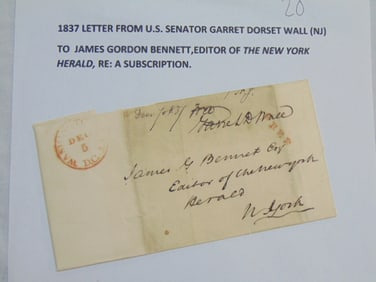 20
1837 LETTER FROM U.S. SENATOR GARRET DORSET WALL (NJ)
TO JAMES GORDON BENNETT,EDITOR OF THE NEW YORK
HERALD, RE: A SUBSCRIPTION.
Free
Garret D. Wall
FREE
DEC
5
James G Bennet Esq
Editor of the New york
Herald
N York